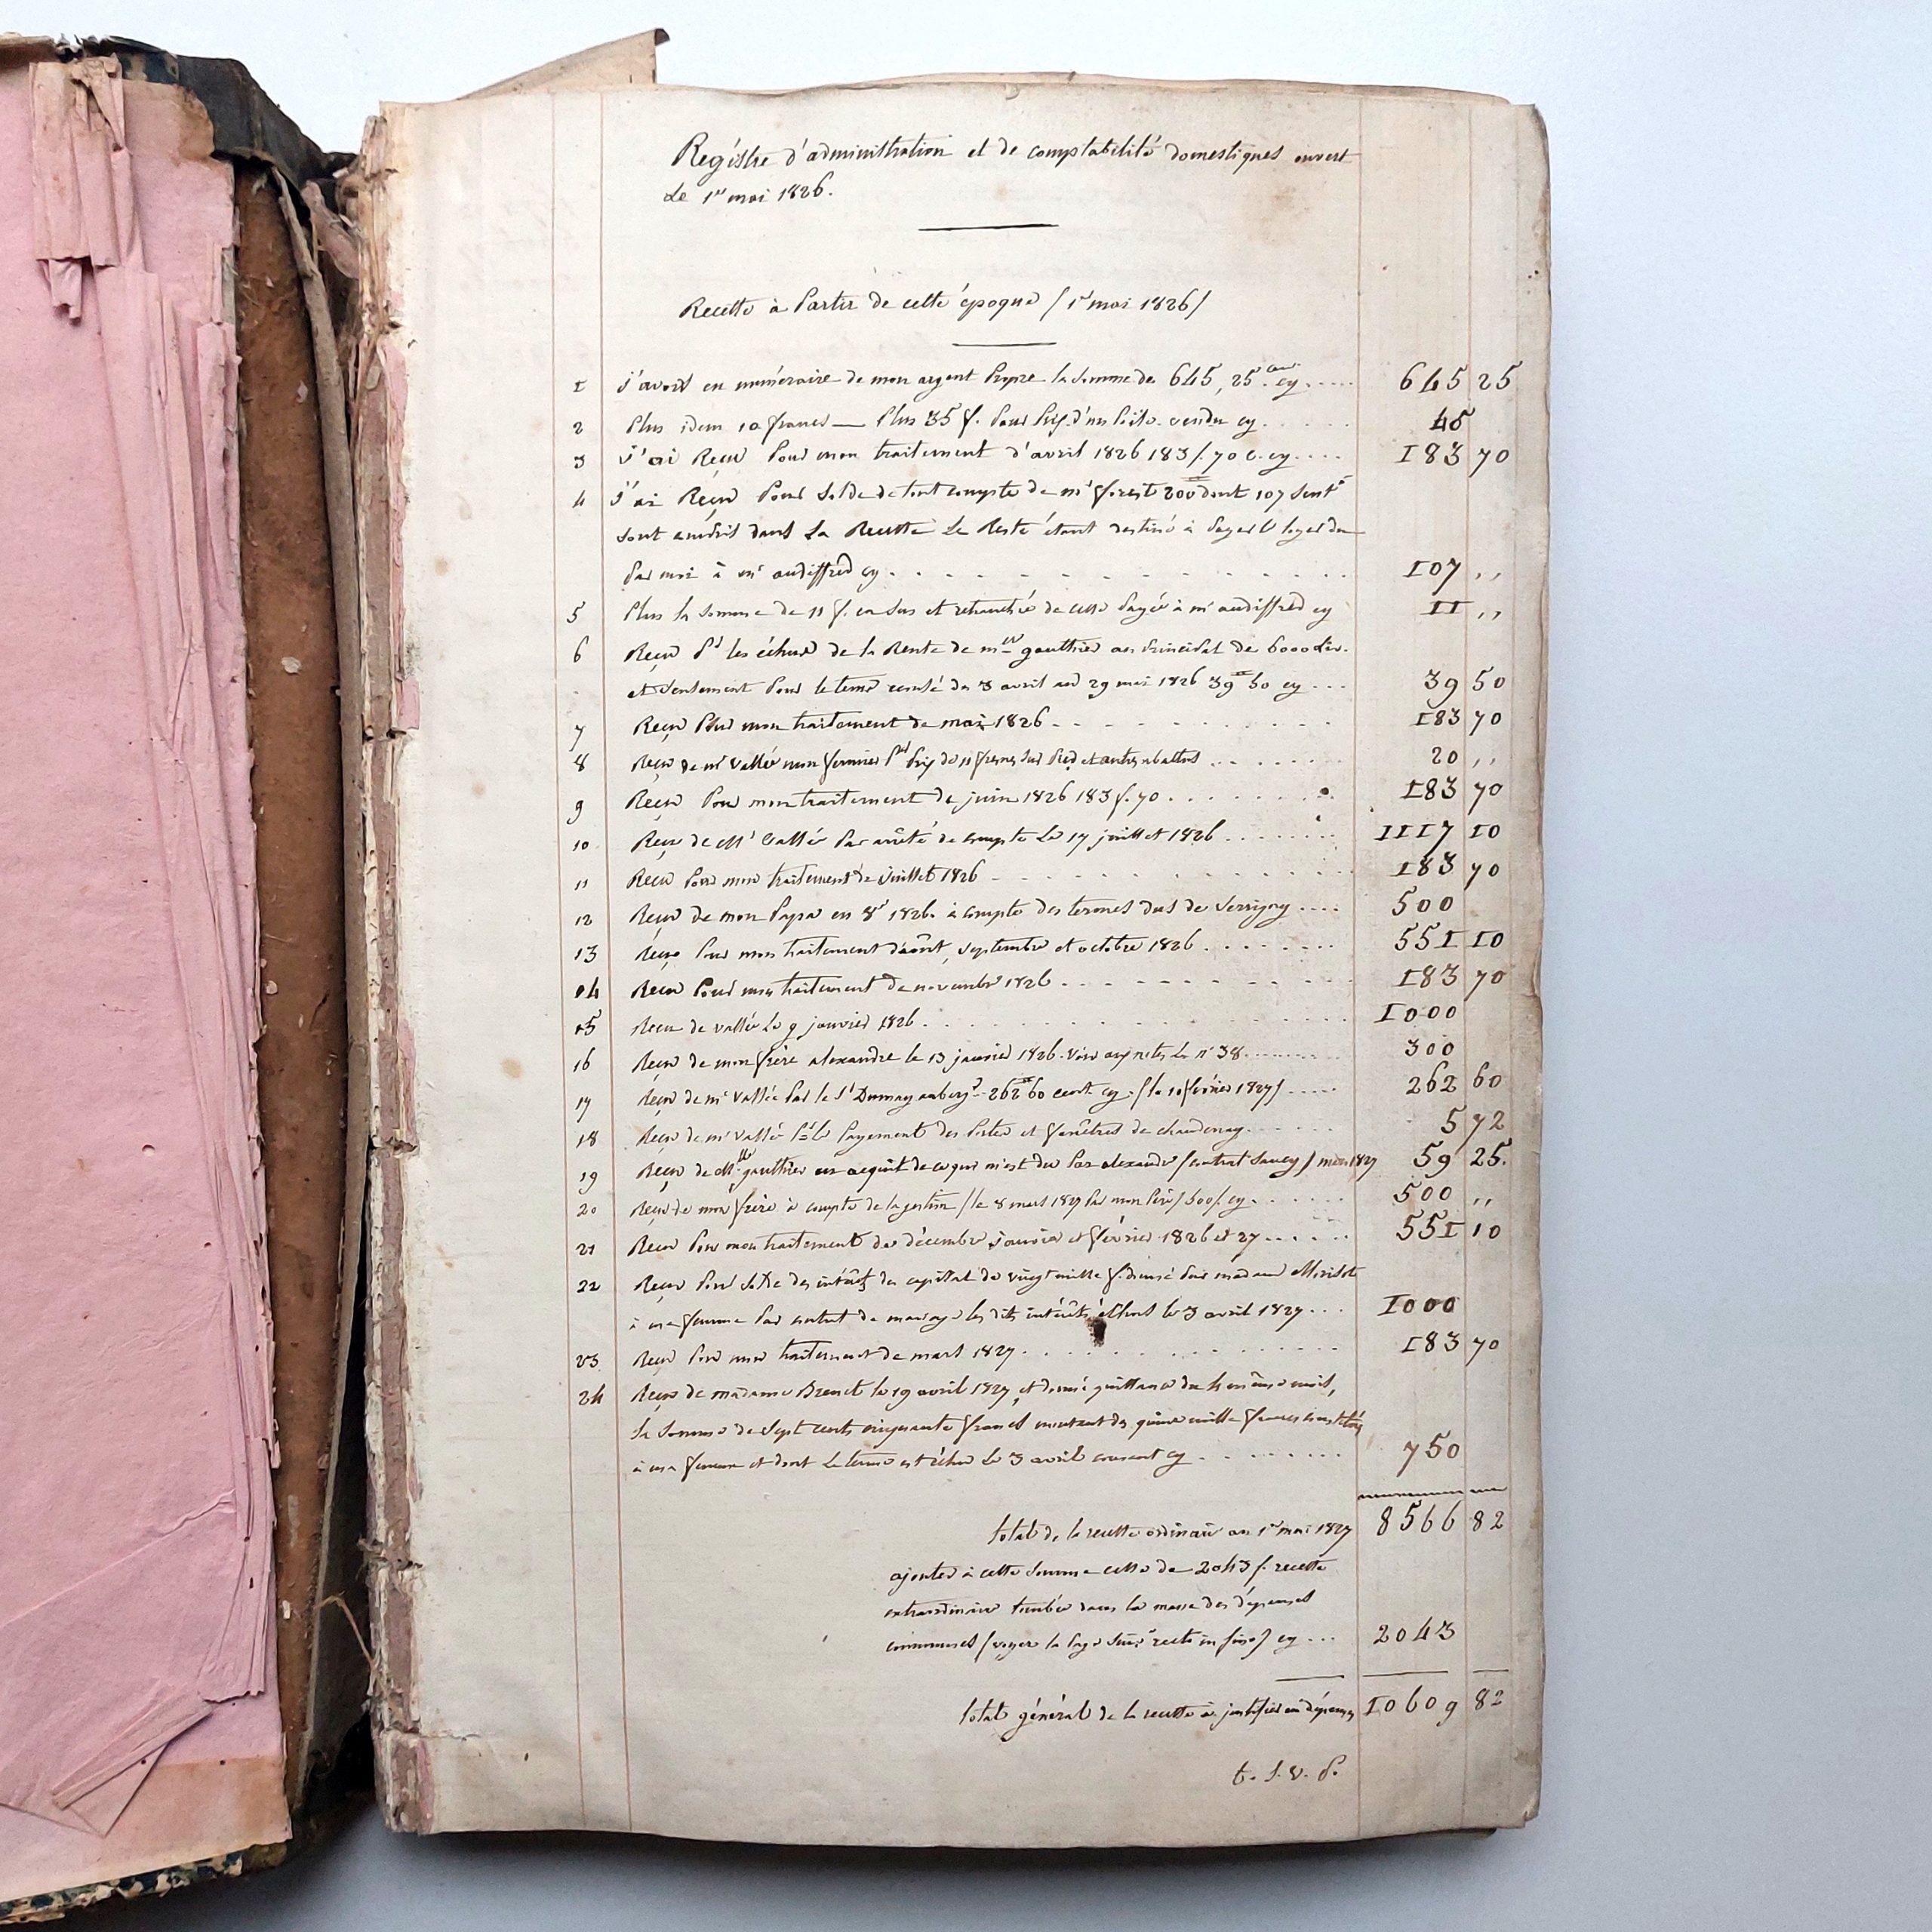 Regístre d'administration et de comptabilité domestiques ouvert
Le 1er mai 1826.
Recette à Partir de cette époque / 1er mai 1826 /
1 J'avois en numéraire de mon argent Propre la Somme de 645, 25 cen. cy ..... 645 25
2 Plus idem 10 francs — Plus 35 f. Pour Prix d'un vendu cy ..... 45
3 J'ai Reçu Pour mon traitement d'avril 1826 183 f. 70 c. cy .... 183 70
4 J'ai Reçu Pour Solde de tout compte de mr forest 200 dont 107 Seult
Sont dans La Recette Le Reste étant destiné à Payer le loyer du
Par moi à mr audiffred cy . . . . 107 ,,
5 Plus la Somme de 11 f. en Sus et retranchée de celle Payée à mr audiffred cy 11 ,,
6 Reçu Pr les échus de la Rente de mlle gauthier au Principal de 6000 liv.
et Seulement Pour le terme du 3 avril au 29 mai 1826 39 50 cy ... 39 50
7 Reçu Pour mon traitement de mai 1826 . . . 183 70
8 Reçu de mr Vallée mon fermier Pr Prix de 11 fresnes Sur Pied et autres abattus . . . 20 ,,
9 Reçu Pour mon traitement de juin 1826 183 f. 70 . . . 183 70
10 Reçu de Mr Vallée Par arrêté de compte Le 17 juillet 1826 . . . 1117 10
11 Reçu Pour mon traitement de Juillet 1826 . . . 183 70
12 Reçu de mon Papa en 8r 1826. à compte des termes dus de Serrigny .... 500
13 Reçu Pour mon traitement d'août, septembre et octobre 1826 . . . 551 10
14 Reçu Pour mon traitement de novembre 1826 . . . 183 70
15 Reçu de vallée Le 9 janvier 1826 . . . 1000
16 Reçu de mon frère alexandre le 13 janvier 1826. Voir aux notes Le n° 38 ... 300
17 Reçu de mr Vallée Par le Sr Dumay auberge 262 60 cent. cy. / le 10 février 1827 / ..... 262 60
18 Reçu de mr Vallée Pr le Payement des Portes et fenêtres de chaudenay . . . 5 72
19 Reçu de Mlle gauthier en acquit de ce qui m'est du Par alexandre / contrat / mars 1827 59 25.
20 Reçu de mon frère à compte de la gestion / le 8 mars 1827 Par mon Père / 500 f. cy . . . 500 ,,
21 Reçu Pour mon traitement de décembre, janvier et février 1826 et 27 . . . 551 10
22 Reçu Pour Solde des intérêts du capital de vingt mille f. Par madame
à ma femme Par contrat de mariage les dits intérêts échus le 3 avril 1827 ... 1000
23 Reçu Pour mon traitement de mars 1827 . . . 183 70
24 Reçu de madame Brenet le 19 avril 1827, et donné quittance du 4 même mois,
La Somme de Sept cents cinquante francs montant des quinze mille francs constitués
à ma femme et dont Le terme est échu Le 3 avril courant cy . . . 750
total de la recette ordinaire au 1er mai 1827 8566 82
ajouter à cette Somme celle de 2043 f. recette
extraordinaire tombée dans la masse des dépenses
communes / voyez la Page Suivte recto in fine / cy ... 2043
total général de la recette à justifier en dépenses 10609 82
t. S. v. P.